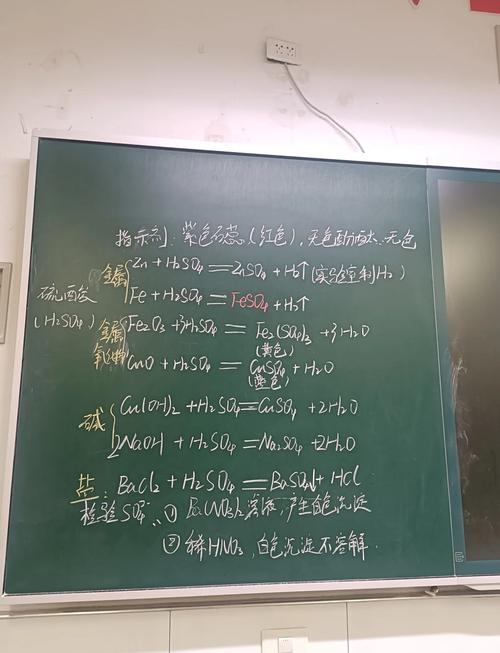 指示剂：紫色石蕊（红色），无色酚酞、无色
硫酸
(H₂SO₄)
金属
Zn + H₂SO₄ = ZnSO₄ + H₂↑ (实验室制H₂)
Fe + H₂SO₄ = FeSO₄ + H₂↑
金属
氧化物
Fe₂O₃ + 3H₂SO₄ = Fe₂(SO₄)₃ + 3H₂O
(黄色)
CuO + H₂SO₄ = CuSO₄ + H₂O
(蓝色)
碱
Cu(OH)₂ + H₂SO₄ = CuSO₄ + 2H₂O
2NaOH + H₂SO₄ = Na₂SO₄ + 2H₂O
盐：BaCl₂ + H₂SO₄ = BaSO₄↓ + HCl
检验SO₄²⁻：① Ba(NO₃)₂溶液，产生白色沉淀
② 稀HNO₃，白色沉淀不溶解.